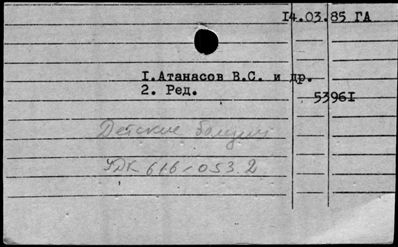 14.03.85 ГА
I.Атанасов В.С. и др.
2. Ред.
53961
Детские болезни
УДК 616-053.2